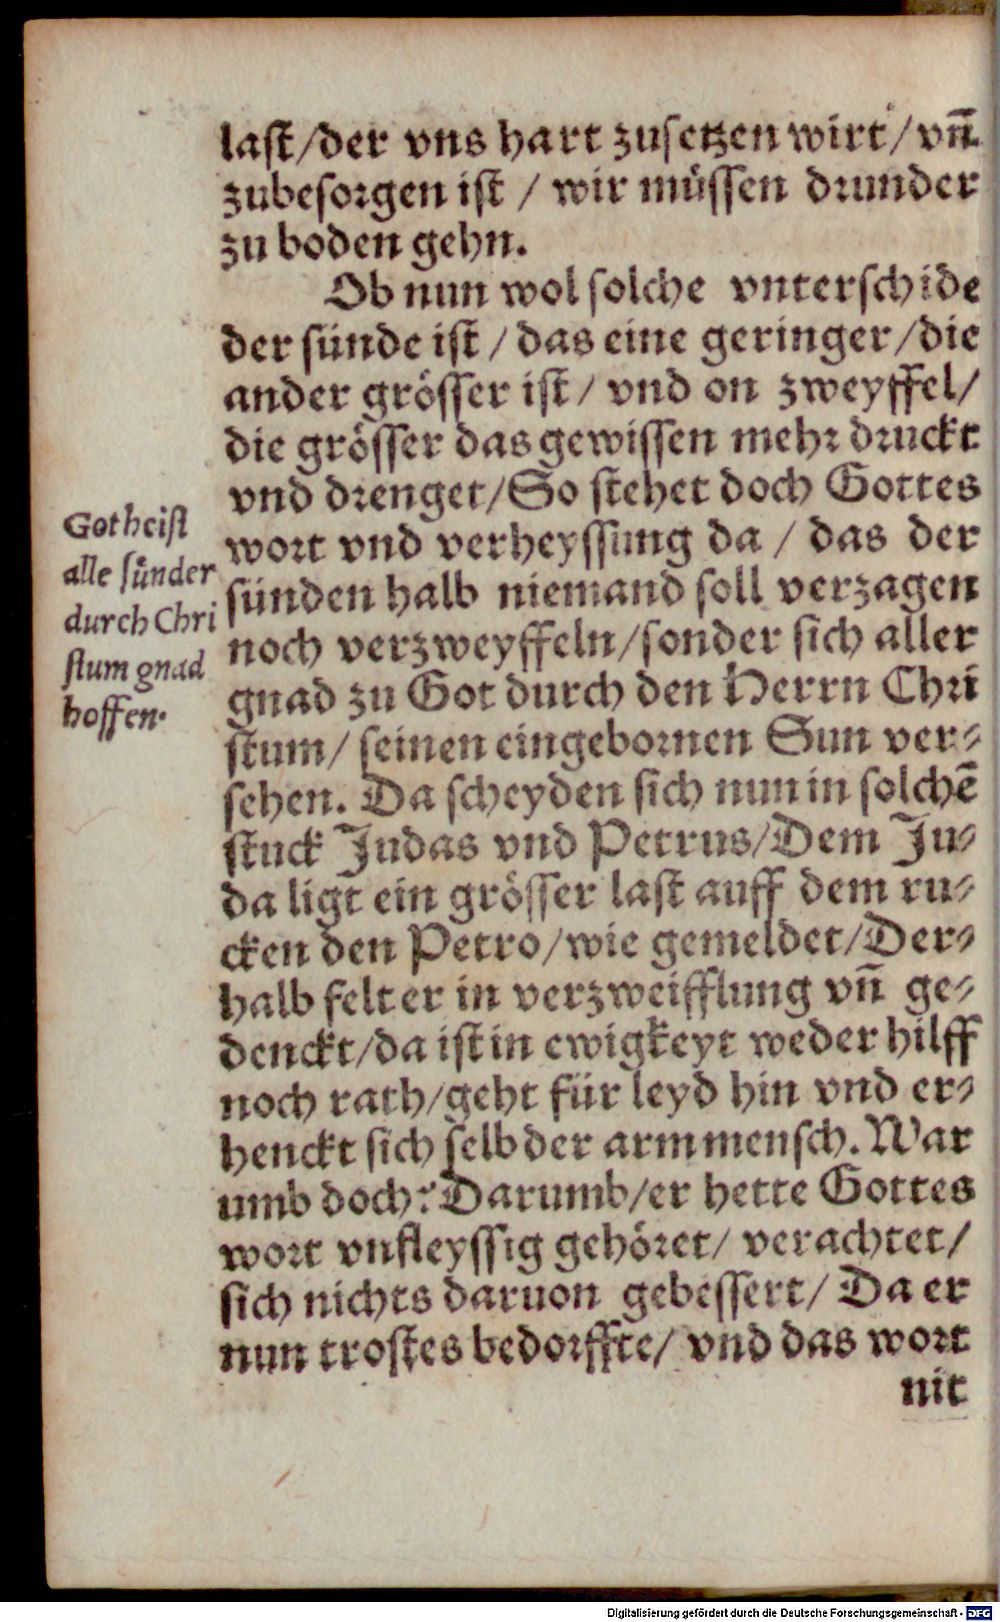 last/der vns hart zusetzen wirt/ vñ
zubesorgen ist / wir müssen drunder
zu boden gehn.
Ob nun wol solche vnterschide
der sünde ist / das eine geringer/die
ander grösser ist/ vnd on zweyffel/
die grösser das gewissen mehr druckt
vnd drenget/So stehet doch Gottes
wort vnd verheyssung da / das der
sünden halb niemand soll verzagen
noch verzweyffeln/sonder sich aller
gnad zu Got durch den Herrn Chri
stum/ seinen eingebornen Sun ver-
sehen. Da scheyden sich nun in solchē
stuck Judas vnd Petrus/Dem Ju-
da ligt ein grösser last auff dem ru-
cken den Petro/wie gemeldet/Der-
halb felt er in verzweifflung vñ ge-
denckt/da ist in ewigkeyt weder hilff
noch rath/geht für leyd hin vnd er-
henckt sich selb der arm mensch. War
umb doch? Darumb/er hette Gottes
wort vnfleyssig gehöret/ verachtet/
sich nichts daruon gebessert/ Da er
nun trostes bedorffte/ vnd das wort
nit
Got heist
alle sünder
durch Chri
stum gnad
hoffen.
Digitalisierung gefördert durch die Deutsche Forschungsgemeinschaft - DFG